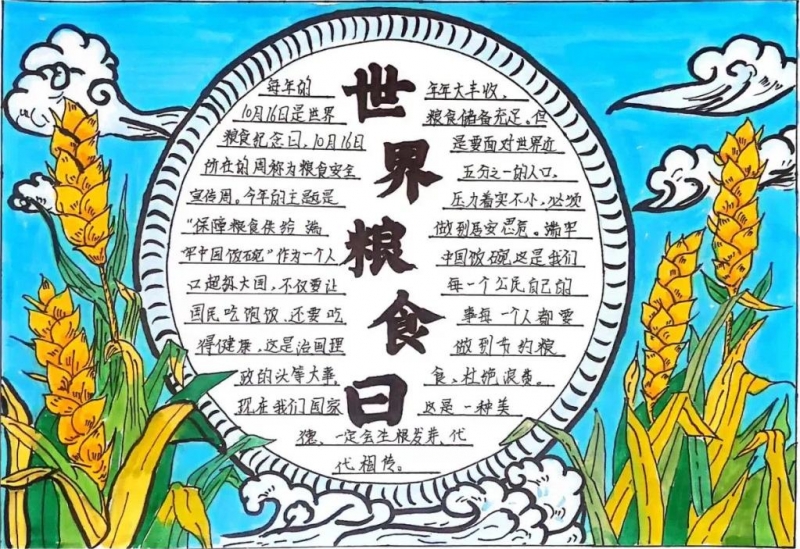 世界粮食日
每年的
10月16日是世界
粮食纪念日,10月16日
所在的周称为粮食安全
宣传周。今年的主题是
"保障粮食供给 端
牢中国饭碗"作为一个人
口超级大国,不仅要让
国民吃饱饭,还要吃
得健康,这是治国理
政的头等大事
现在我们国家
年年大丰收、
粮食储备充足。但
是要面对世界近
五分之一的人口。
压力着实不小,必须
做到居安思危。端牢
中国饭碗这是我们
每一个公民自己的
事每一个人都要
做到节约粮
食、杜绝浪费。
这是一种美
德、一定会生根发芽、代
代相传。